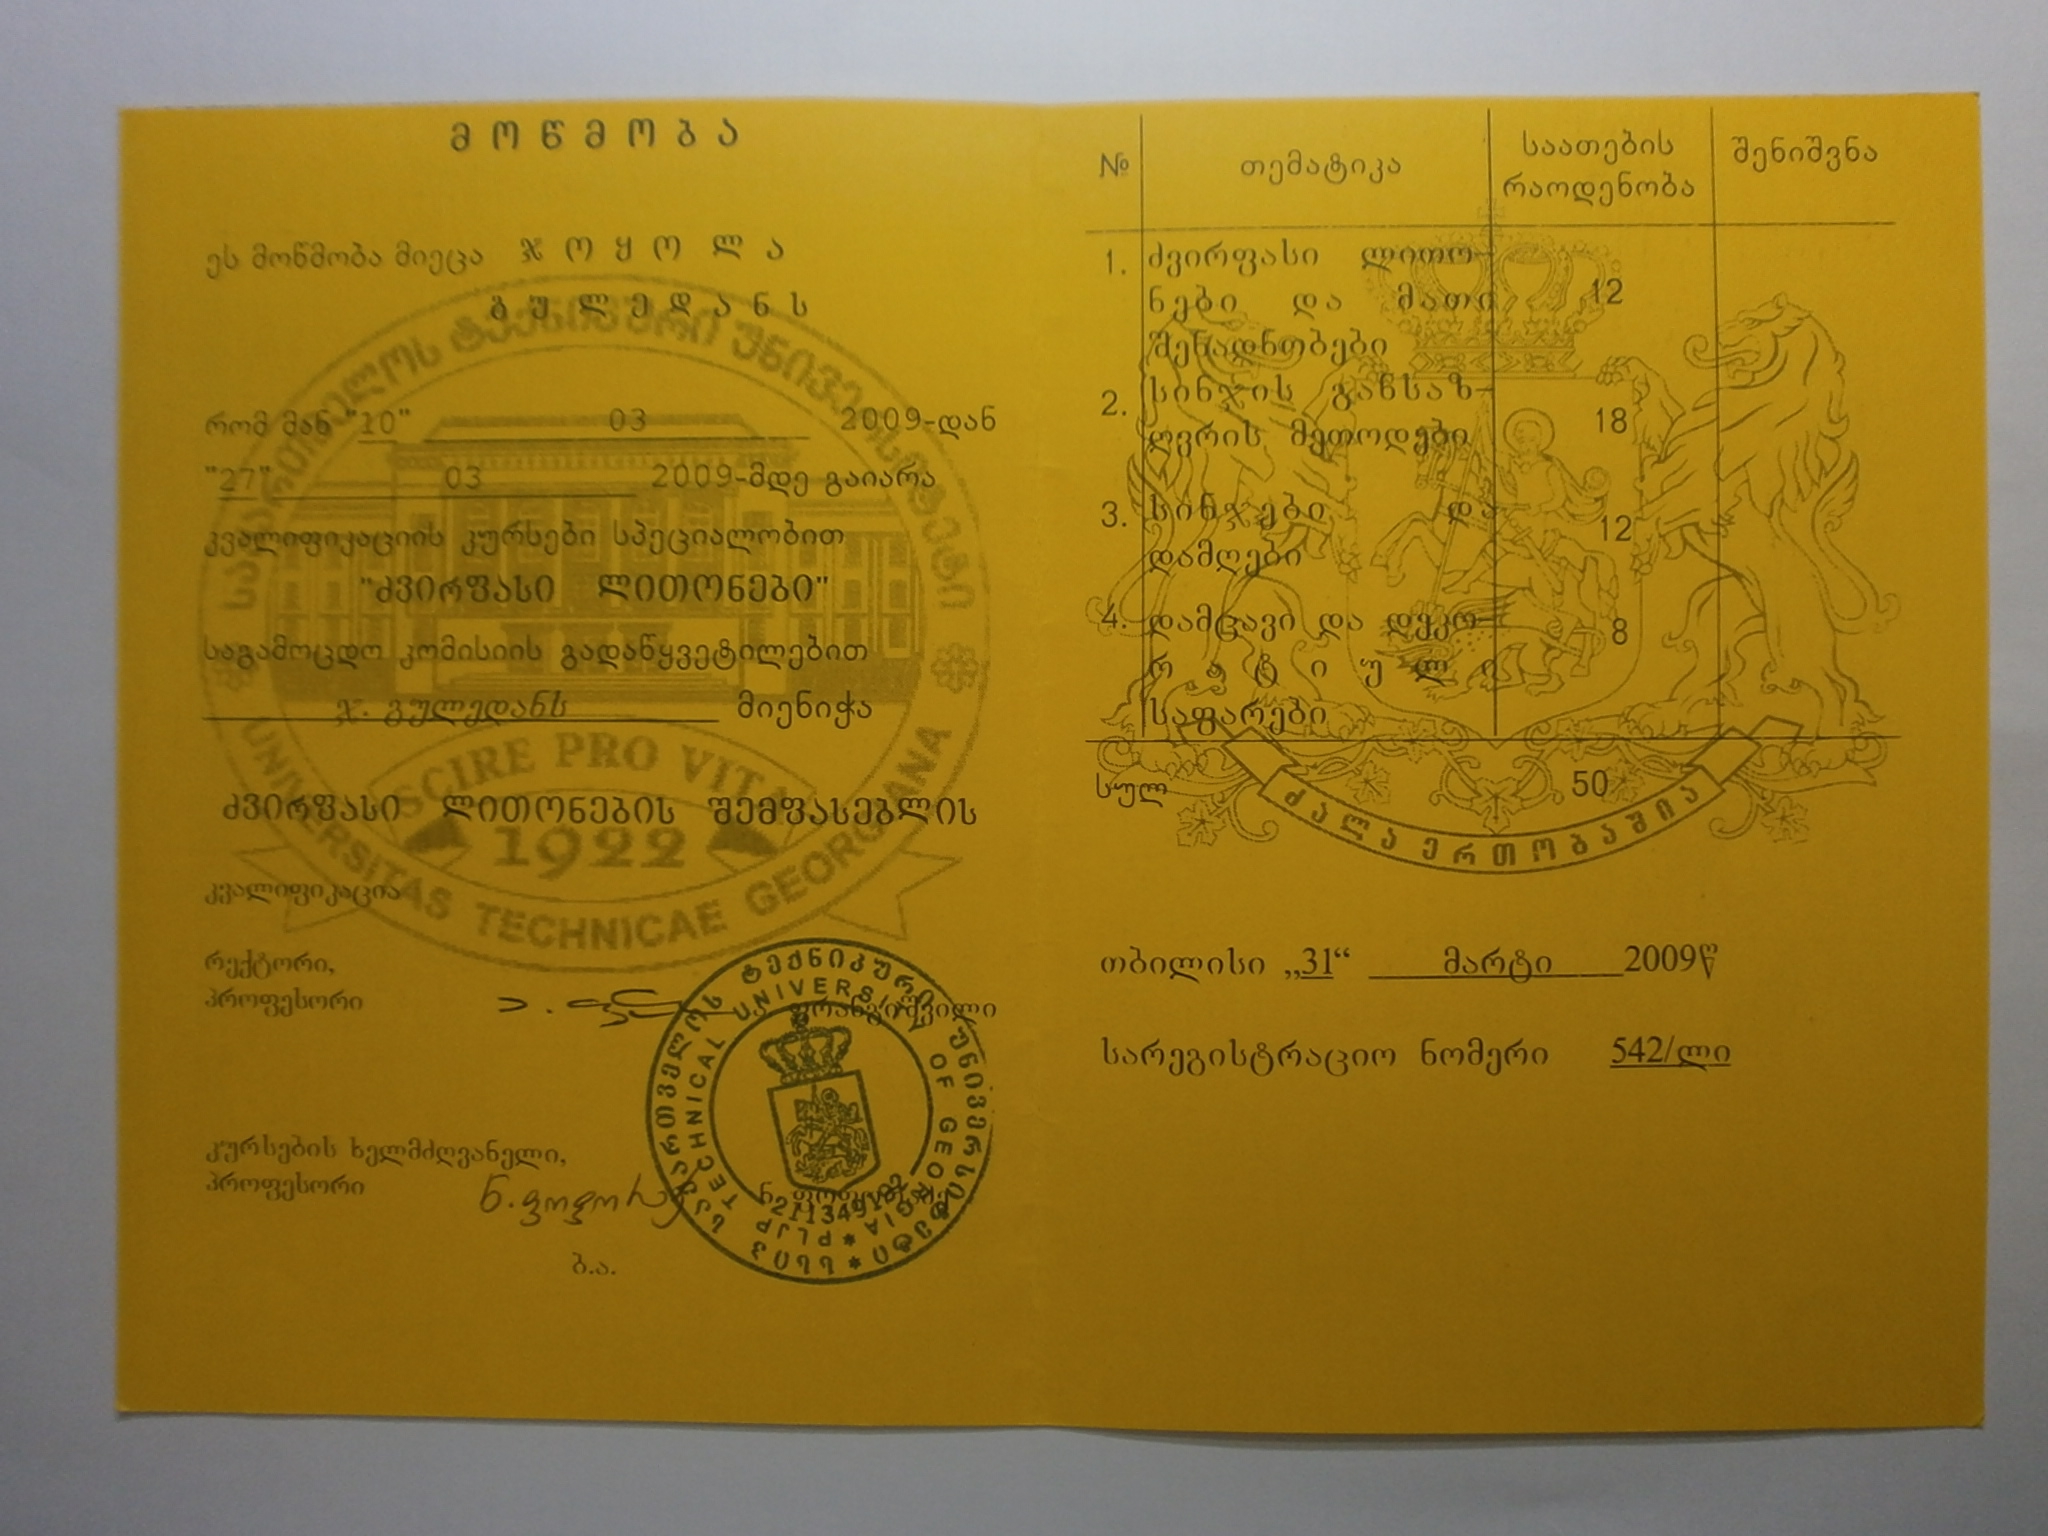 მოწმობა
ეს მოწმობა მიეცა ჯოყოლა
გულედანს
საქართველოს ტექნიკური უნივერსიტეტი
რომ მან "10" 03 2009-დან
"27" 03 2009-მდე გაიარა
კვალიფიკაციის კურსები სპეციალობით
"ძვირფასი ლითონები"
საგამოცდო კომისიის გადაწყვეტილებით
ჯ. გულედანს მიენიჭა
SCIRE PRO VITA
1922
UNIVERSITAS TECHNICAE GEORGIANA
ძვირფასი ლითონების შემფასებლის
კვალიფიკაცია
რექტორი,
პროფესორი ფრანგიშვილი
კურსების ხელმძღვანელი,
პროფესორი
ბ.ა.
საქართველოს ტექნიკური უნივერსიტეტი
TECHNICAL UNIVERSITY OF GEORGIA
№ თემატიკა საათების რაოდენობა შენიშვნა
1. ძვირფასი ლითო-
ნები და მათი 12
შენადნობები
2. სინჯის განსაზ-
ღვრის მეთოდები 18
3. სინჯები და 12
დამღები
4. დამცავი და დეკო- 8
რატიული
საფარები
სულ 50
ძალა ერთობაშია
თბილისი „31“ მარტი 2009წ
სარეგისტრაციო ნომერი 542/ლი